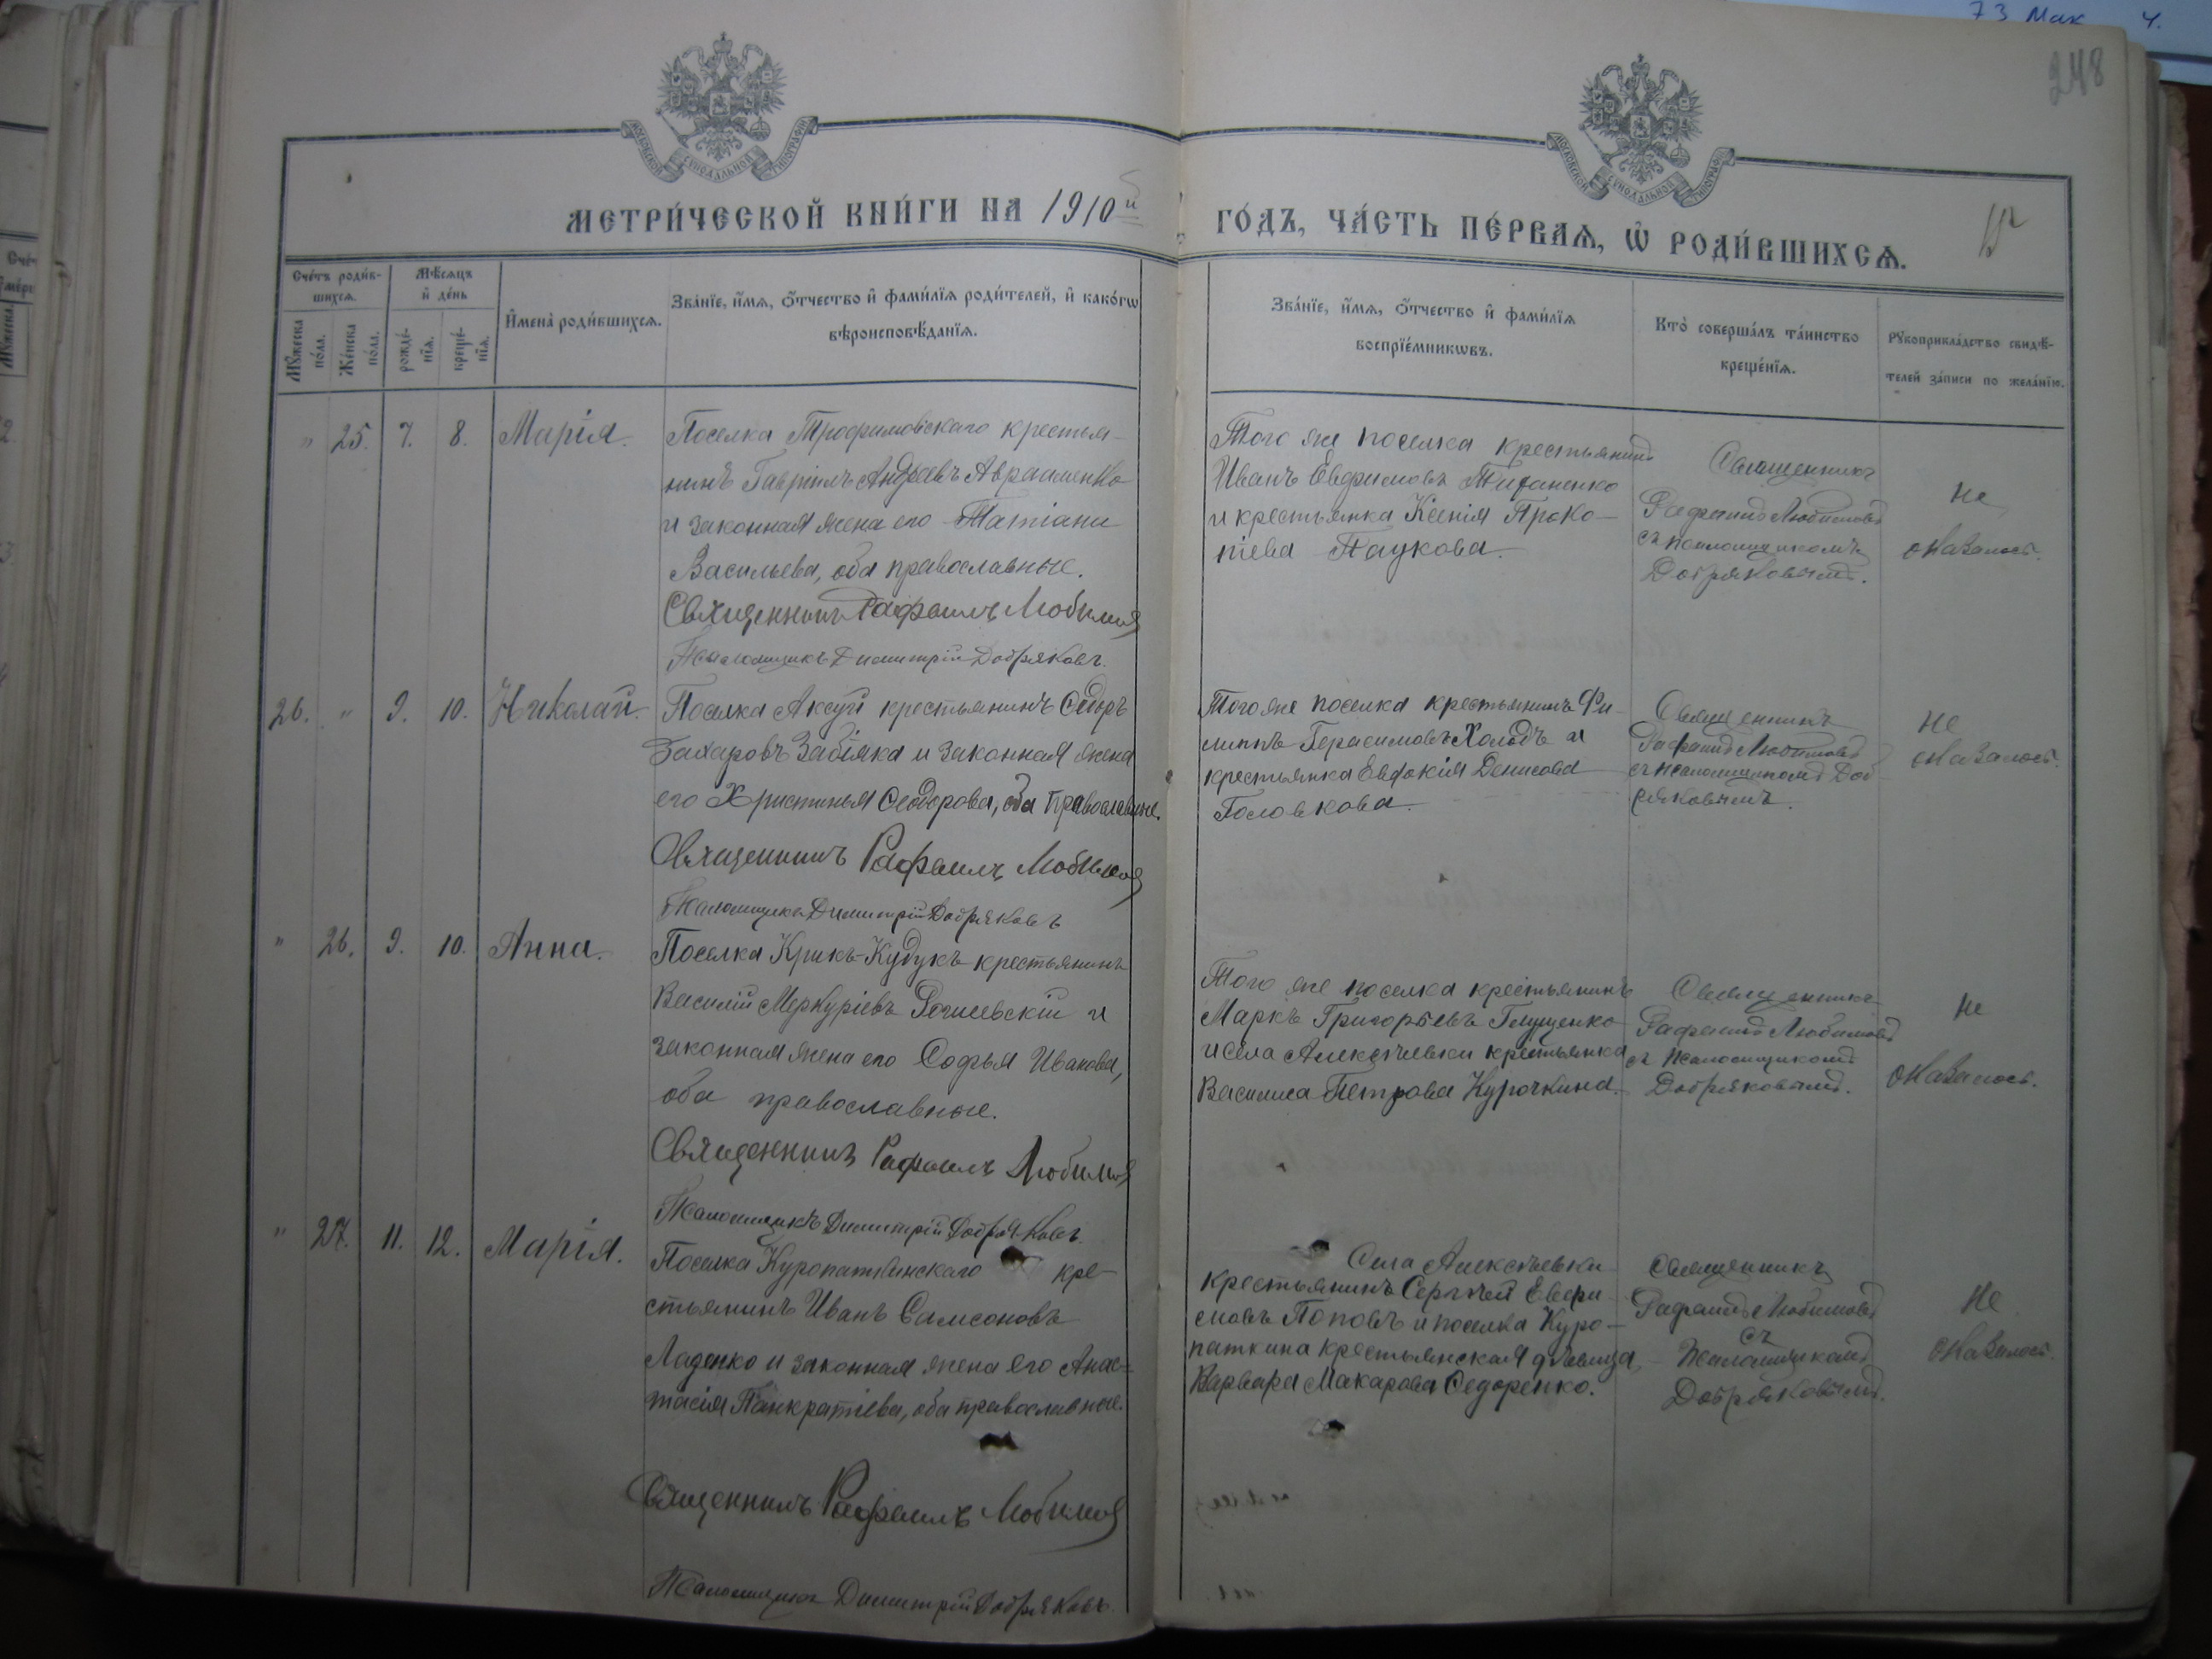 73 Мак 4.
248
МОСКОВСКОЙ СУНОДАЛЬНОЙ ТИПОГРАФІИ
МОСКОВСКОЙ СУНОДАЛЬНОЙ ТИПОГРАФІИ
МЕТРИ́ЧЕСКОЙ КНИ́ГИ НА 1910й
ГО́ДЪ, ЧА́СТЬ ПЕ́РВАѦ, Ѡ҆ РОДИ́ВШИХСѦ.
Сче́тъ роди́в-
шихсѧ.
Мѣ́сѧцъ
и҆ де́нь
Мꙋ́жеска
по́ла.
Же́нска
по́ла.
рожде́-
нїѧ.
креще́-
нїѧ.
И҆мена̀ роди́вшихсѧ.
Зва́нїе, и҆́мѧ, ѻ҆́тчество и҆ фами́лїѧ роди́телей, и҆ како́гѡ
вѣроисповѣ́данїѧ.
Зва́нїе, и҆́мѧ, ѻ҆́тчество и҆ фами́лїѧ
воспрїе́мникѡвъ.
Кто̀ соверша́лъ та́инство
креще́нїѧ.
Рꙋкоприкла́дство свидѣ́-
телей за́писи по жела́нїю.
" 25. 7. 8. Марія.
Поселка Трофимовскаго крестья-
нинъ Гавріилъ Андреевъ Авраменко
и законная жена его Татіана
Васильева, оба православные.
Священникъ Рафаилъ Любимов
Псаломщикъ Димитрій Добряковъ.
Того же поселка крестьянинъ
Иванъ Евфимовъ
и крестьянка Ксенія Проко-
піева Паукова.
Священникъ
Рафаилъ Любимовъ
съ псаломщикомъ
Добряковымъ.
не
оказалось.
26. " 9. 10. Николай.
Поселка Аксуй крестьянинъ Сидоръ
Захаровъ Забіяка и законная жена
его Христинья Феодорова, оба православные.
Священникъ Рафаилъ Любимов
Псаломщикъ Димитрій Добряковъ
Того же поселка крестьянинъ Фи-
липпъ Герасимовъ Холодъ и
крестьянка Евдокія Денисова
Головкова.
Священникъ
Рафаилъ Любимовъ
съ псаломщикомъ Доб-
ряковымъ.
не
оказалось.
" 26. 9. 10. Анна.
Поселка Крикъ-Кудукъ крестьянинъ
Василій Меркуріевъ и
законная жена его Софья Иванова,
оба православные.
Священникъ Рафаилъ Любимов
Псаломщикъ Димитрій Добряковъ.
Того же поселка крестьянинъ
Маркъ Григорьевъ Глущенко
и села Алексѣевки крестьянка
Василиса Петрова Курочкина.
Священникъ
Рафаилъ Любимовъ
съ псаломщикомъ
Добряковымъ.
не
оказалось.
" 27. 11. 12. Марія.
Поселка Куропаткинскаго кре-
стьянинъ Иванъ Самсоновъ
Лазенко и законная жена его Анас-
тасія Панкратіева, оба православные.
Священникъ Рафаилъ Любимов
Псаломщикъ Димитрій Добряковъ.
Села Алексѣевки
крестьянинъ Сергѣй Евфи-
мовъ Поповъ и поселка Куро-
паткина крестьянская дѣвица
Варвара Макарова Седоренко.
Священникъ
Рафаилъ Любимовъ
съ
Псаломщикомъ
Добряковымъ.
не
оказалось.